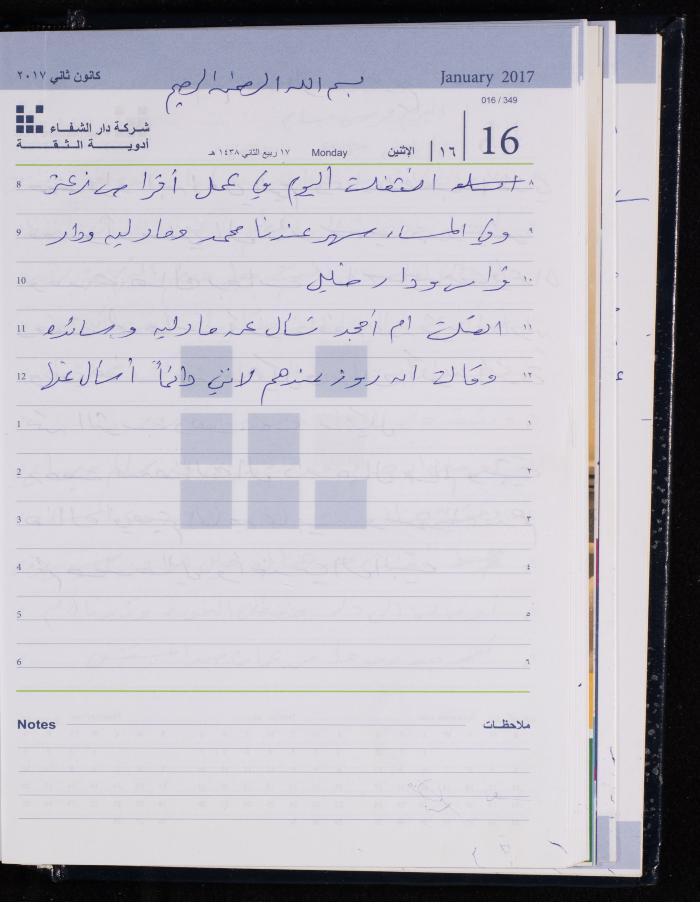 كانون ثاني ٢٠١٧
بسم الله الرحمن الرحيم
January 2017
016 / 349
شركة دار الشفاء
أدويــة الـثـقــة
١٧ ربيع الثاني ١٤٣٨ هـ
Monday
الإثنين
١٦
16
8 انشغلت اليوم في عمل أقراص زعتر ٨
9 وفي المساء سهر عندنا محمد ومادليه ودار ٩
10 فراس ودار خليل ١٠
11 اتصلت ام أمجد تسأل عن مادليه وسائده ١١
12 وقالت انه روز عندهم لانني دائماً أسأل عنها ١٢
1 ١
2 ٢
3 ٣
4 ٤
5 ٥
6 ٦
Notes ملاحظات